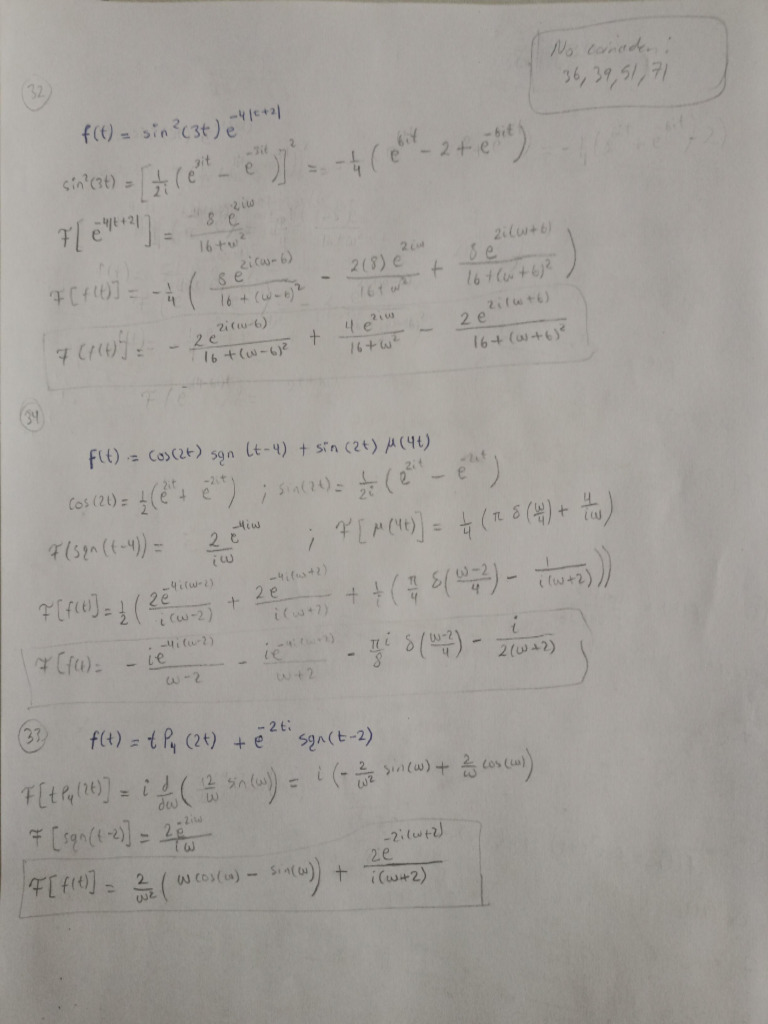 No coinciden:
36, 39, 51, 71
32
f(t) = sin²(3t) e^{-4|t+2|}
sin²(3t) = [1/2i (e^{3it} - e^{-3it})]² = -1/4 (e^{6it} - 2 + e^{-6it})
F[e^{-4|t+2|}] = 8e^{2iω}/(16+ω²)
F[f(t)] = -1/4 (8e^{2i(ω-6)}/(16+(ω-6)²) - 2(8)e^{2iω}/(16+ω²) + 8e^{2i(ω+6)}/(16+(ω+6)²))
F(f(t)] = - 2e^{2i(ω-6)}/(16+(ω-6)²) + 4e^{2iω}/(16+ω²) - 2e^{2i(ω+6)}/(16+(ω+6)²)
34
f(t) = cos(2t) sgn (t-4) + sin(2t) μ(4t)
cos(2t) = 1/2 (e^{2it} + e^{-2it}) ; sin(2t) = 1/2i (e^{2it} - e^{-2it})
F(sgn(t-4)) = 2e^{-4iω}/iω ; F[μ(4t)] = 1/4 (π δ(ω/4) + 4/iω)
F[f(t)] = 1/2 (2e^{-4i(ω-2)}/i(ω-2) + 2e^{-4i(ω+2)}/i(ω+2) + 1/i (π/4 δ((ω-2)/4) - 1/i(ω+2)))
F[f(t) = - ie^{-4i(ω-2)}/(ω-2) - ie^{-4i(ω+2)}/(ω+2) - π/8 i δ((ω-2)/4) - i/2(ω+2)
33
f(t) = t P₄ (2t) + e^{-2ti} sgn(t-2)
F[t P₄(2t)] = i d/dω (2/ω sin(ω)) = i (-2/ω² sin(ω) + 2/ω cos(ω))
F[sgn(t-2)] = 2e^{-2iω}/iω
F[f(t)] = 2/ω² (ω cos(ω) - sin(ω)) + 2e^{-2i(ω+2)}/i(ω+2)